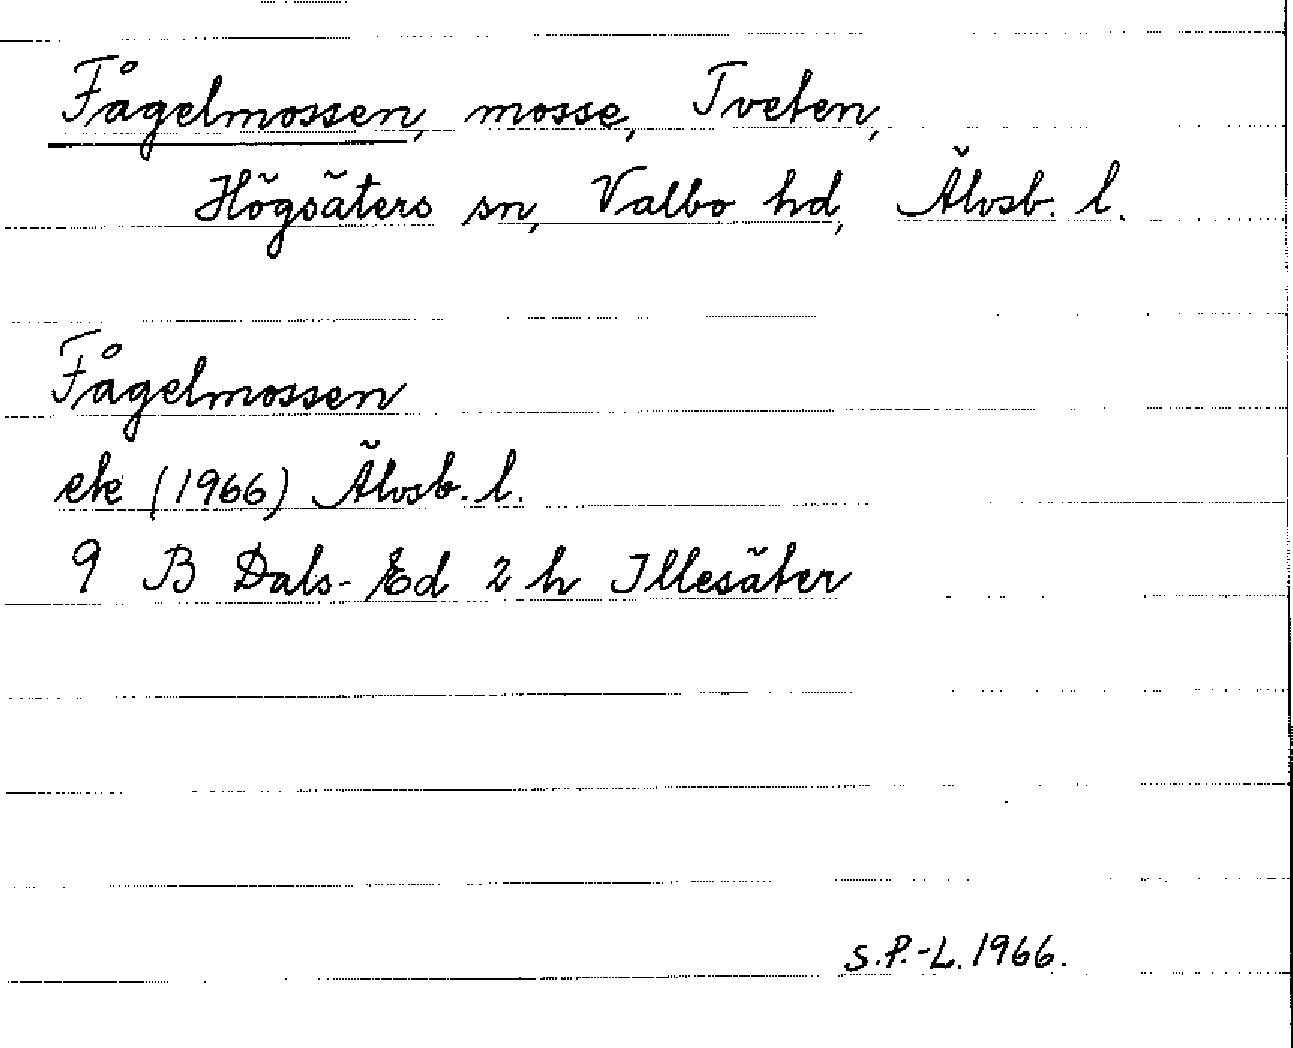 Fågelmossen, mosse, Tveten,
Högsäters sn, Valbo hd, Älvsb. l.
Fågelmossen
ek (1966) Älvsb. l.
9 B Dals-Ed 2 h Illesäter
S.P.-L. 1966.